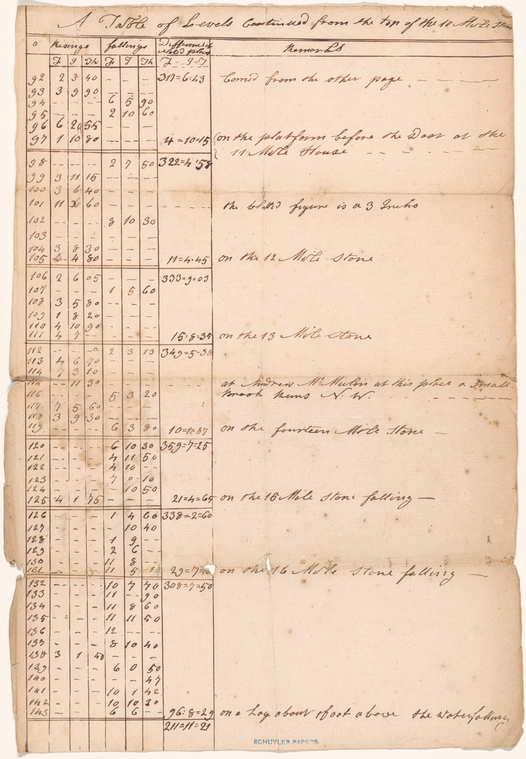 A Table of Levels Continued from the top of the 10 Mile
o Risings fallings difference Remarks
F I Th F I Th F - I - T
92 2 3 40 - - - 317=6·43 Carried from the other page
93 3 9 90 - - -
94 - - - 6 5 90
95 - - - 2 10 60
96 6 20 55 - - -
97 1 10 80 - - - 4=10·15 on the platform before the Door at the
11 Mile House
98 - - - 2 7 50 322=4·58
99 3 11 15 - - -
100 3 6 40 - - -
101 11 3 60 - - - the blotted figure is a 3 Inches
102 - - - 8 10 30
103 - - - - - -
104 3 8 30 - - -
105 4 80 - - - 11=4·45 on the 12 Mile Stone
106 2 6 05 - - - 333=9=03
107 - - - 1 5 60
108 3 5 80 - - -
109 1 8 20 - - -
110 4 10 90 - - -
111 4 7 - - - - 15·8=35 on the 13 Mile Stone
112 - - - 2 3 13 349=5·38
113 4 6 70 - - -
114 7 3 10 - - -
11 30 - - - at Andrew at this place a Small
116 - - - 5 3 20 Brook Runs N. W.
117 7 5 60 - - -
3 9 30 - - -
119 - - - 6 3 80 10= on the fourteen Mile Stone -
120 - - - 6 10 30 359=7=25
121 - - - 4 11 50
122 - - - 4 10 -
123 - - - 7 0 10
124 - - - - 10 50
125 4 1 75 - - - 21=4=65 on the 15 Mile Stone falling -
126 - - - 1 4 60 338=2=60
127 - - - - 10 40
128 - - - 1 9 -
129 - - - 2 6 -
130 - - - 11 8 -
- - - 11 5 29=7= on the 16 Mile Stone falling -
132 - - - 10 7 70 308=7=50
133 - - - 11 - 90
134 - - - 11 8 60
135 - - - 11 11 50
136 - - - 12 - -
137 - - - 8 10 40
138 3 1 - - -
139 - - - 6 0 50
140 - - - - - 47
141 - - - 10 1 42
142 - - - 10 10 30
143 - - - 6 6 - 96·8=29 on a Log about 1 foot above the Water falling
211=11=21
SCHUYLER PAPERS